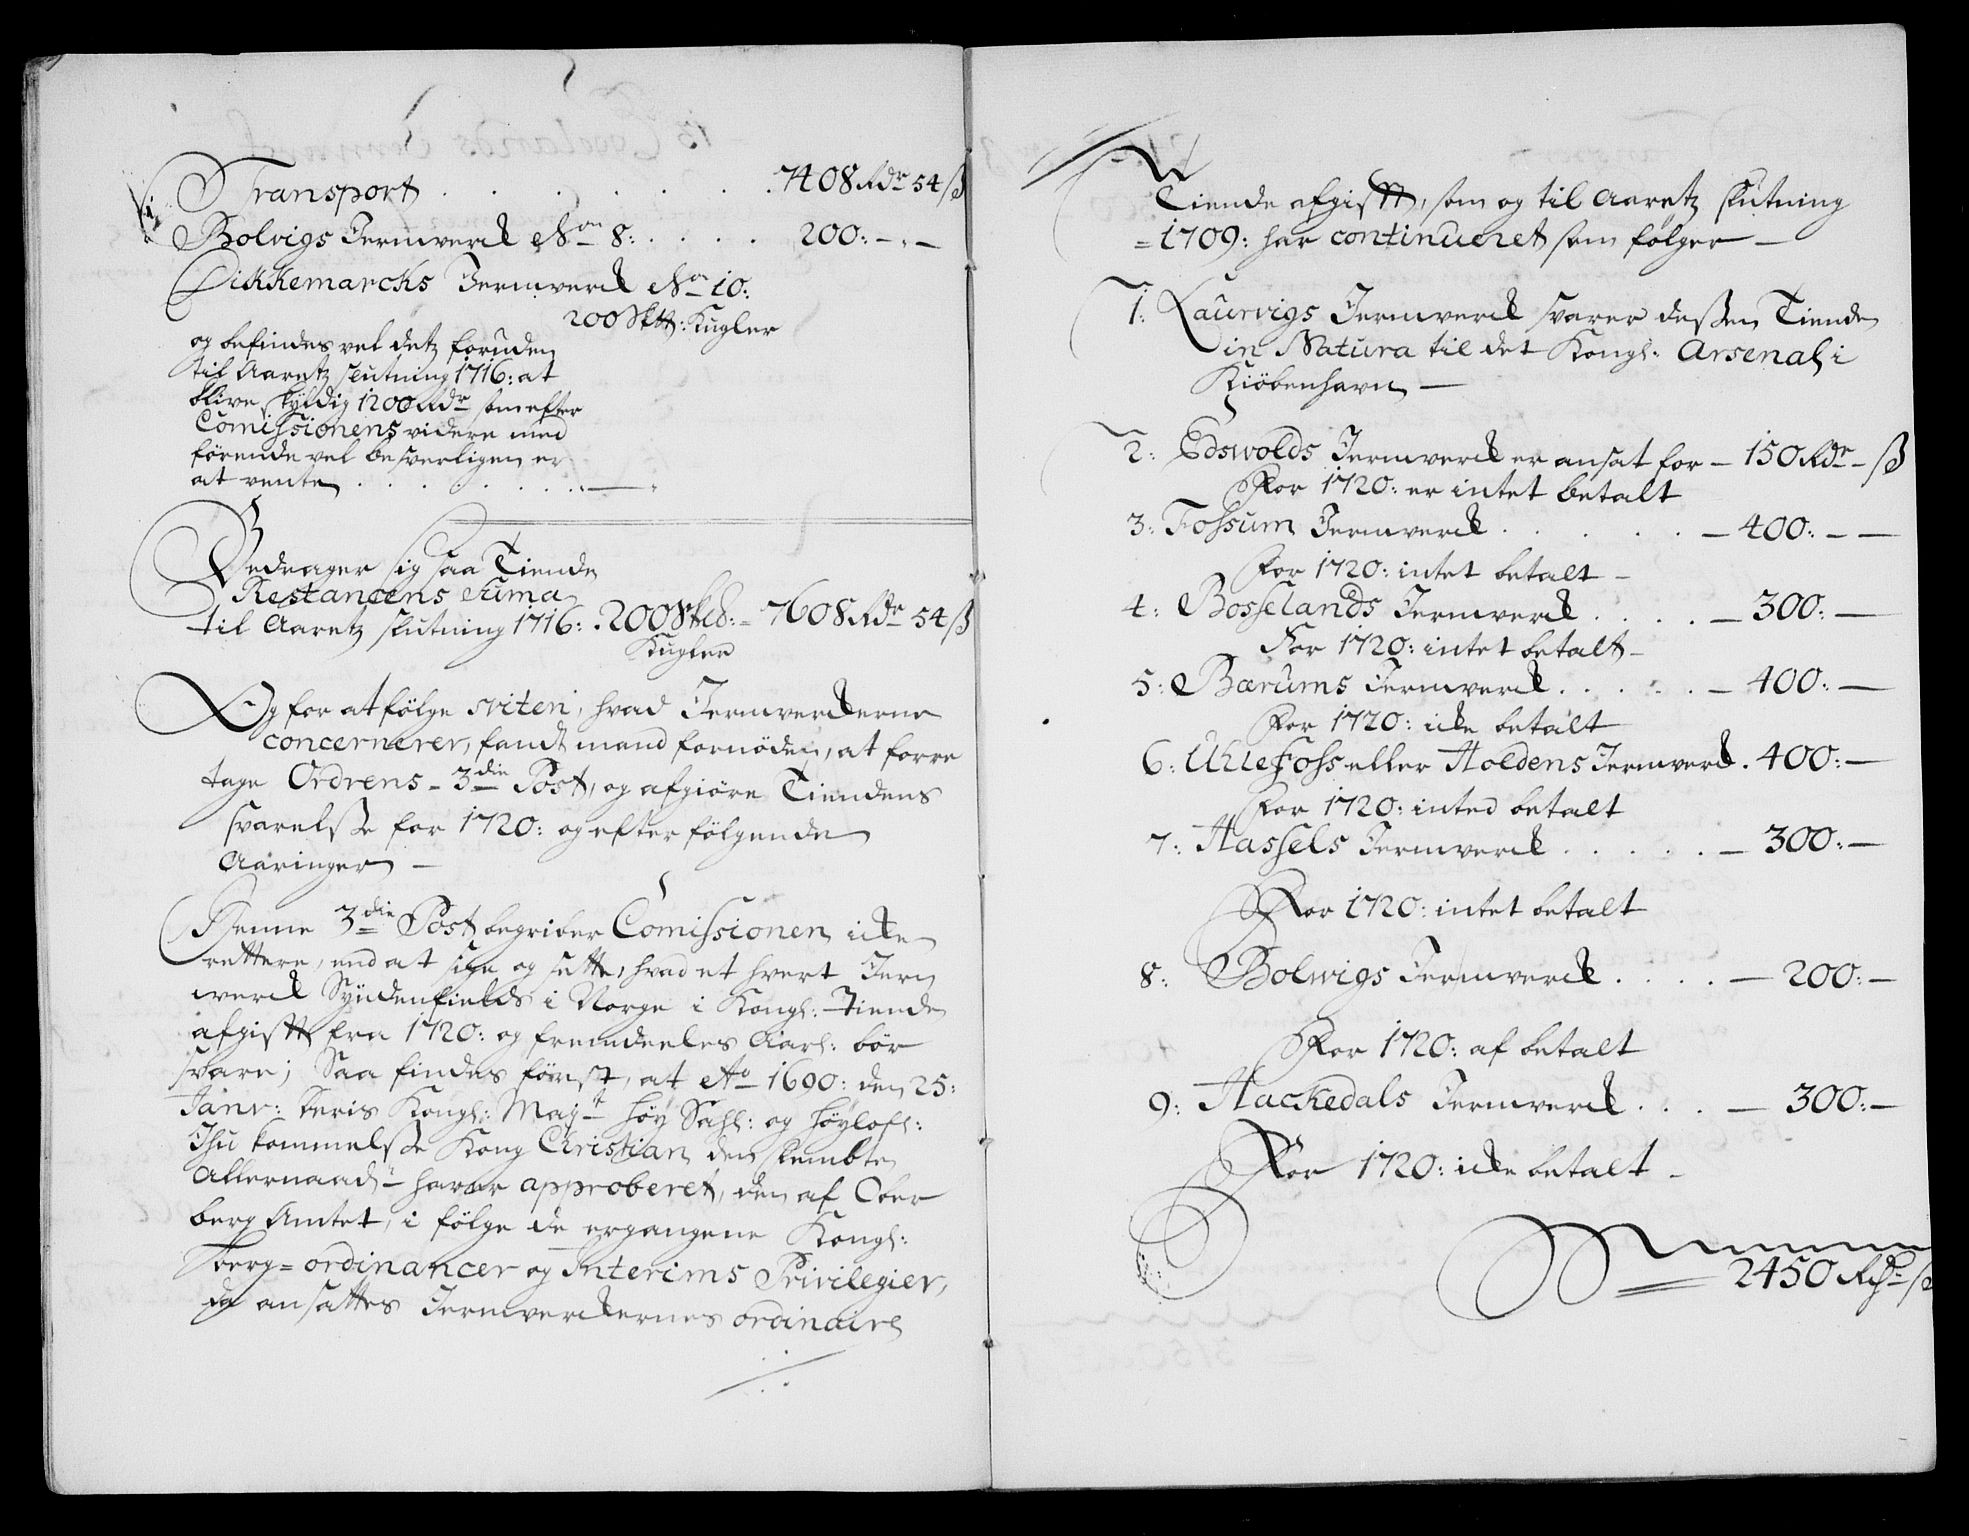 Transport . . . . . . . 7408 Rdr 54 ß
Bolvigs Jernverck No 8: . . . . 200: - . -
Dikkemarcks Jernverck No 10:
200 Sktt: Kugler
og befindes vel detz foruden
til Aaretz slutning 1716: at
blive skyldig 1200 Rdr som efter
Comissionens videre med
førende vel besverligen er
at vente . . . . . . . . —
Bedrager sig saa Tiende
Restancens Suma
til Aaretz slutning 1716: . 200 Skd: - 7608 Rdr 54 ß
Kugler
Og for at følge sviten, hvad Jernverckerne
concernerer, fandt mand fornøden, at forre
tage Ordrens - 3die Post, og afgiøre Tiendens
svarelsse for 1720: og efter følgende
Aaringer —
Denne 3die Post begriber Comissionen icke
rettere, end at sige og sette, hvad et hvert Jern
werck Syndenfields i Norge i Kongl: Tiende
afgifft fra 1720: og fremdeeles Aarl: bør
svare; Saa findes først, at Ao 1690: den 25:
Janv: Deris Kongl: Mayt høy Sahl: og høylofl:
Ihu kommelsse Kong Christian den fembte
Allernaadt haver approberet, den af Ober
berg Amtet, i følge de ergangene Kongl:
berg = ordinancer og Interims Privilegier,
da ansattes Jernverckernes ordinaire
Tiende afgifft, som og til Aaretz slutning
= 1709: har continueret som følger —
1: Laurvigs Jernverck svarer dessen Tiende
in Natura til det Kongl: Arsenal i
Kiøbenhavn —
2: Edswolds Jernverck er ansat for - 150 Rdr - ß
For 1720: er intet betalt
3: Fossum Jernverck . . . . . - 400: - -
For 1720: intet betalt -
4: Bosselands Jernverck . . . . - 300: —
For 1720: intet betalt -
5: Bærums Jernverck . . . . . - 400: —
For 1720: icke betalt
6: Uhlefoss eller Holdens Jernverck . 400: —
For 1720: inted betalt
7: Hassels Jernverck . . . . . - 300: —
For 1720: intet betalt
8: Bolwigs Jernverck . . . . - 200: —
For 1720: af betalt
9: Hackedals Jernverck . . . - 300: —
For 1720: icke betalt -
2450 Rdr - ß